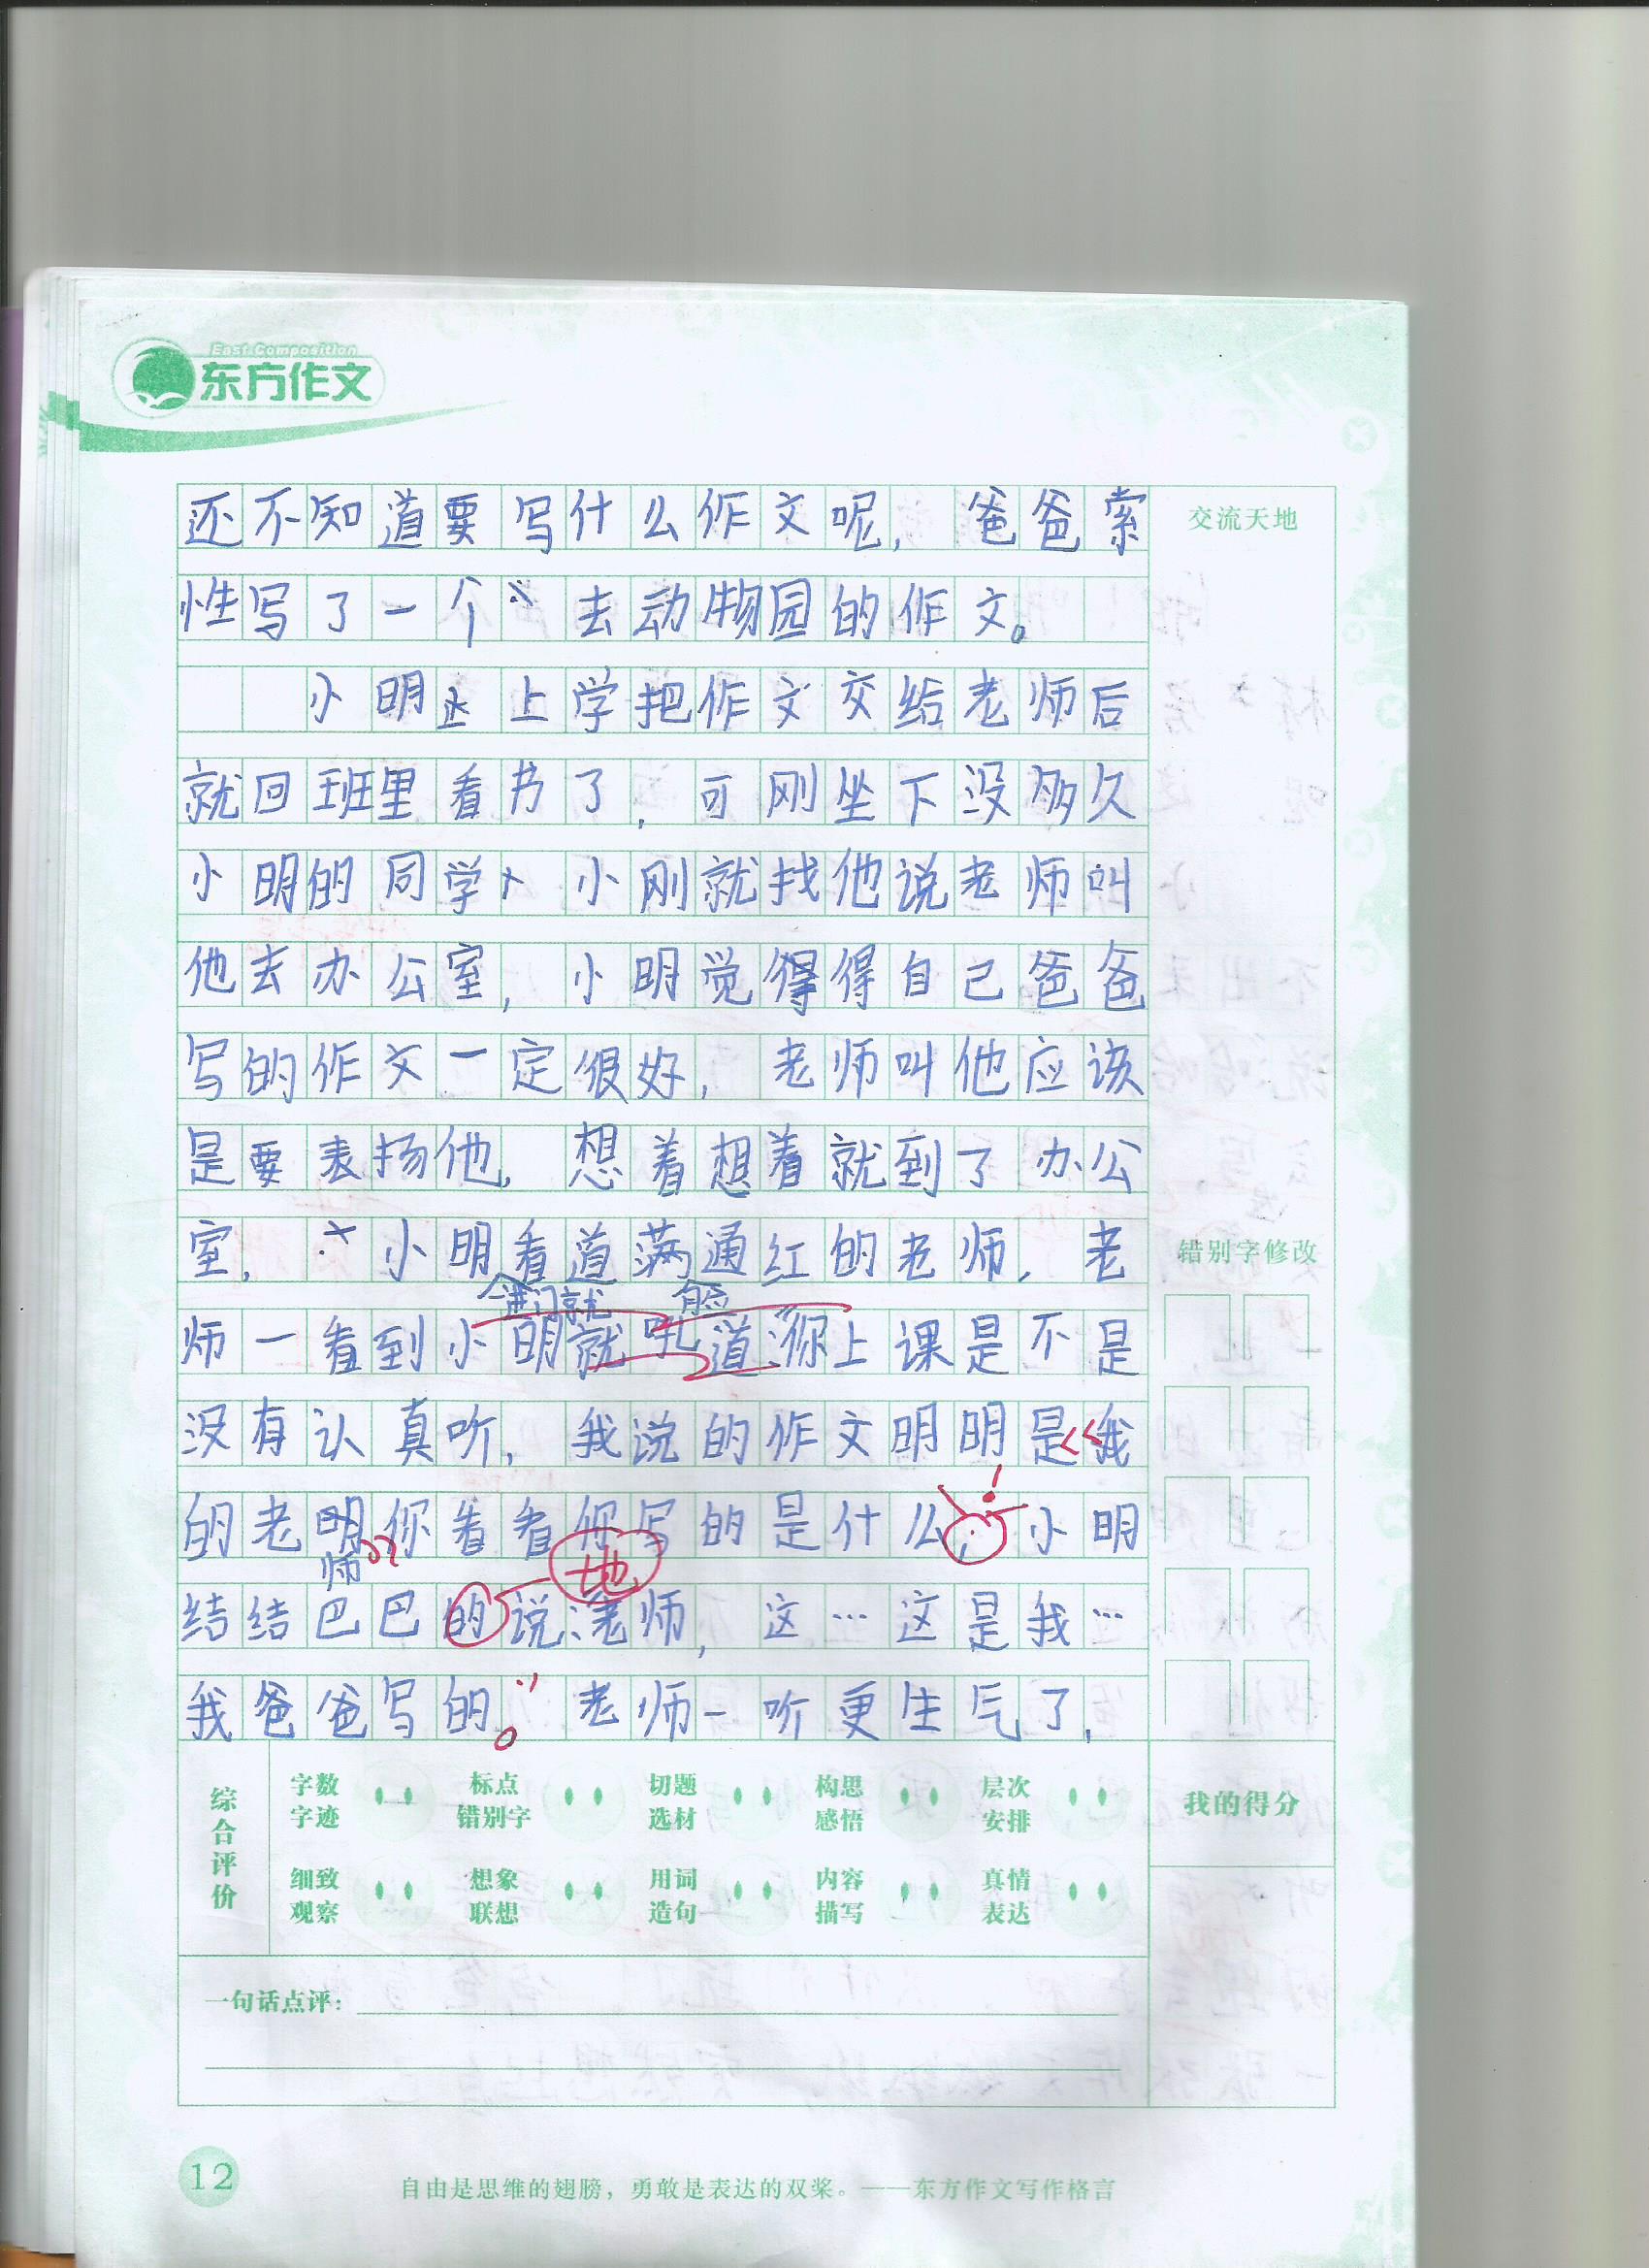 East Composition
东方作文
交流天地
还不知道要写什么作文呢，爸爸索
性写了一个去动物园的作文。
小明上学把作文交给老师后
就回班里看书了，可刚坐下没多久
小明的同学小刚就找他说老师叫
他去办公室，小明觉得得自己爸爸
写的作文一定很好，老师叫他应该
是要表扬他，想着想着就到了办公
室，小明看道满通红的老师，老
一进门就 脸
错别字修改
师一看到小明就吼道：“你上课是不是
没有认真听，我说的作文明明是《我
的老明你看看你写的是什么，！小明
师》？
地
结结巴巴的说：老师，这…这是我…
我爸爸写的。老师一听更生气了，
综合评价
字数 标点 切题 构思 层次
字迹 错别字 选材 感悟 安排
我的得分
细致 想象 用词 内容 真情
观察 联想 造句 描写 表达
一句话点评：
12
自由是思维的翅膀，勇敢是表达的双桨。——东方作文写作格言